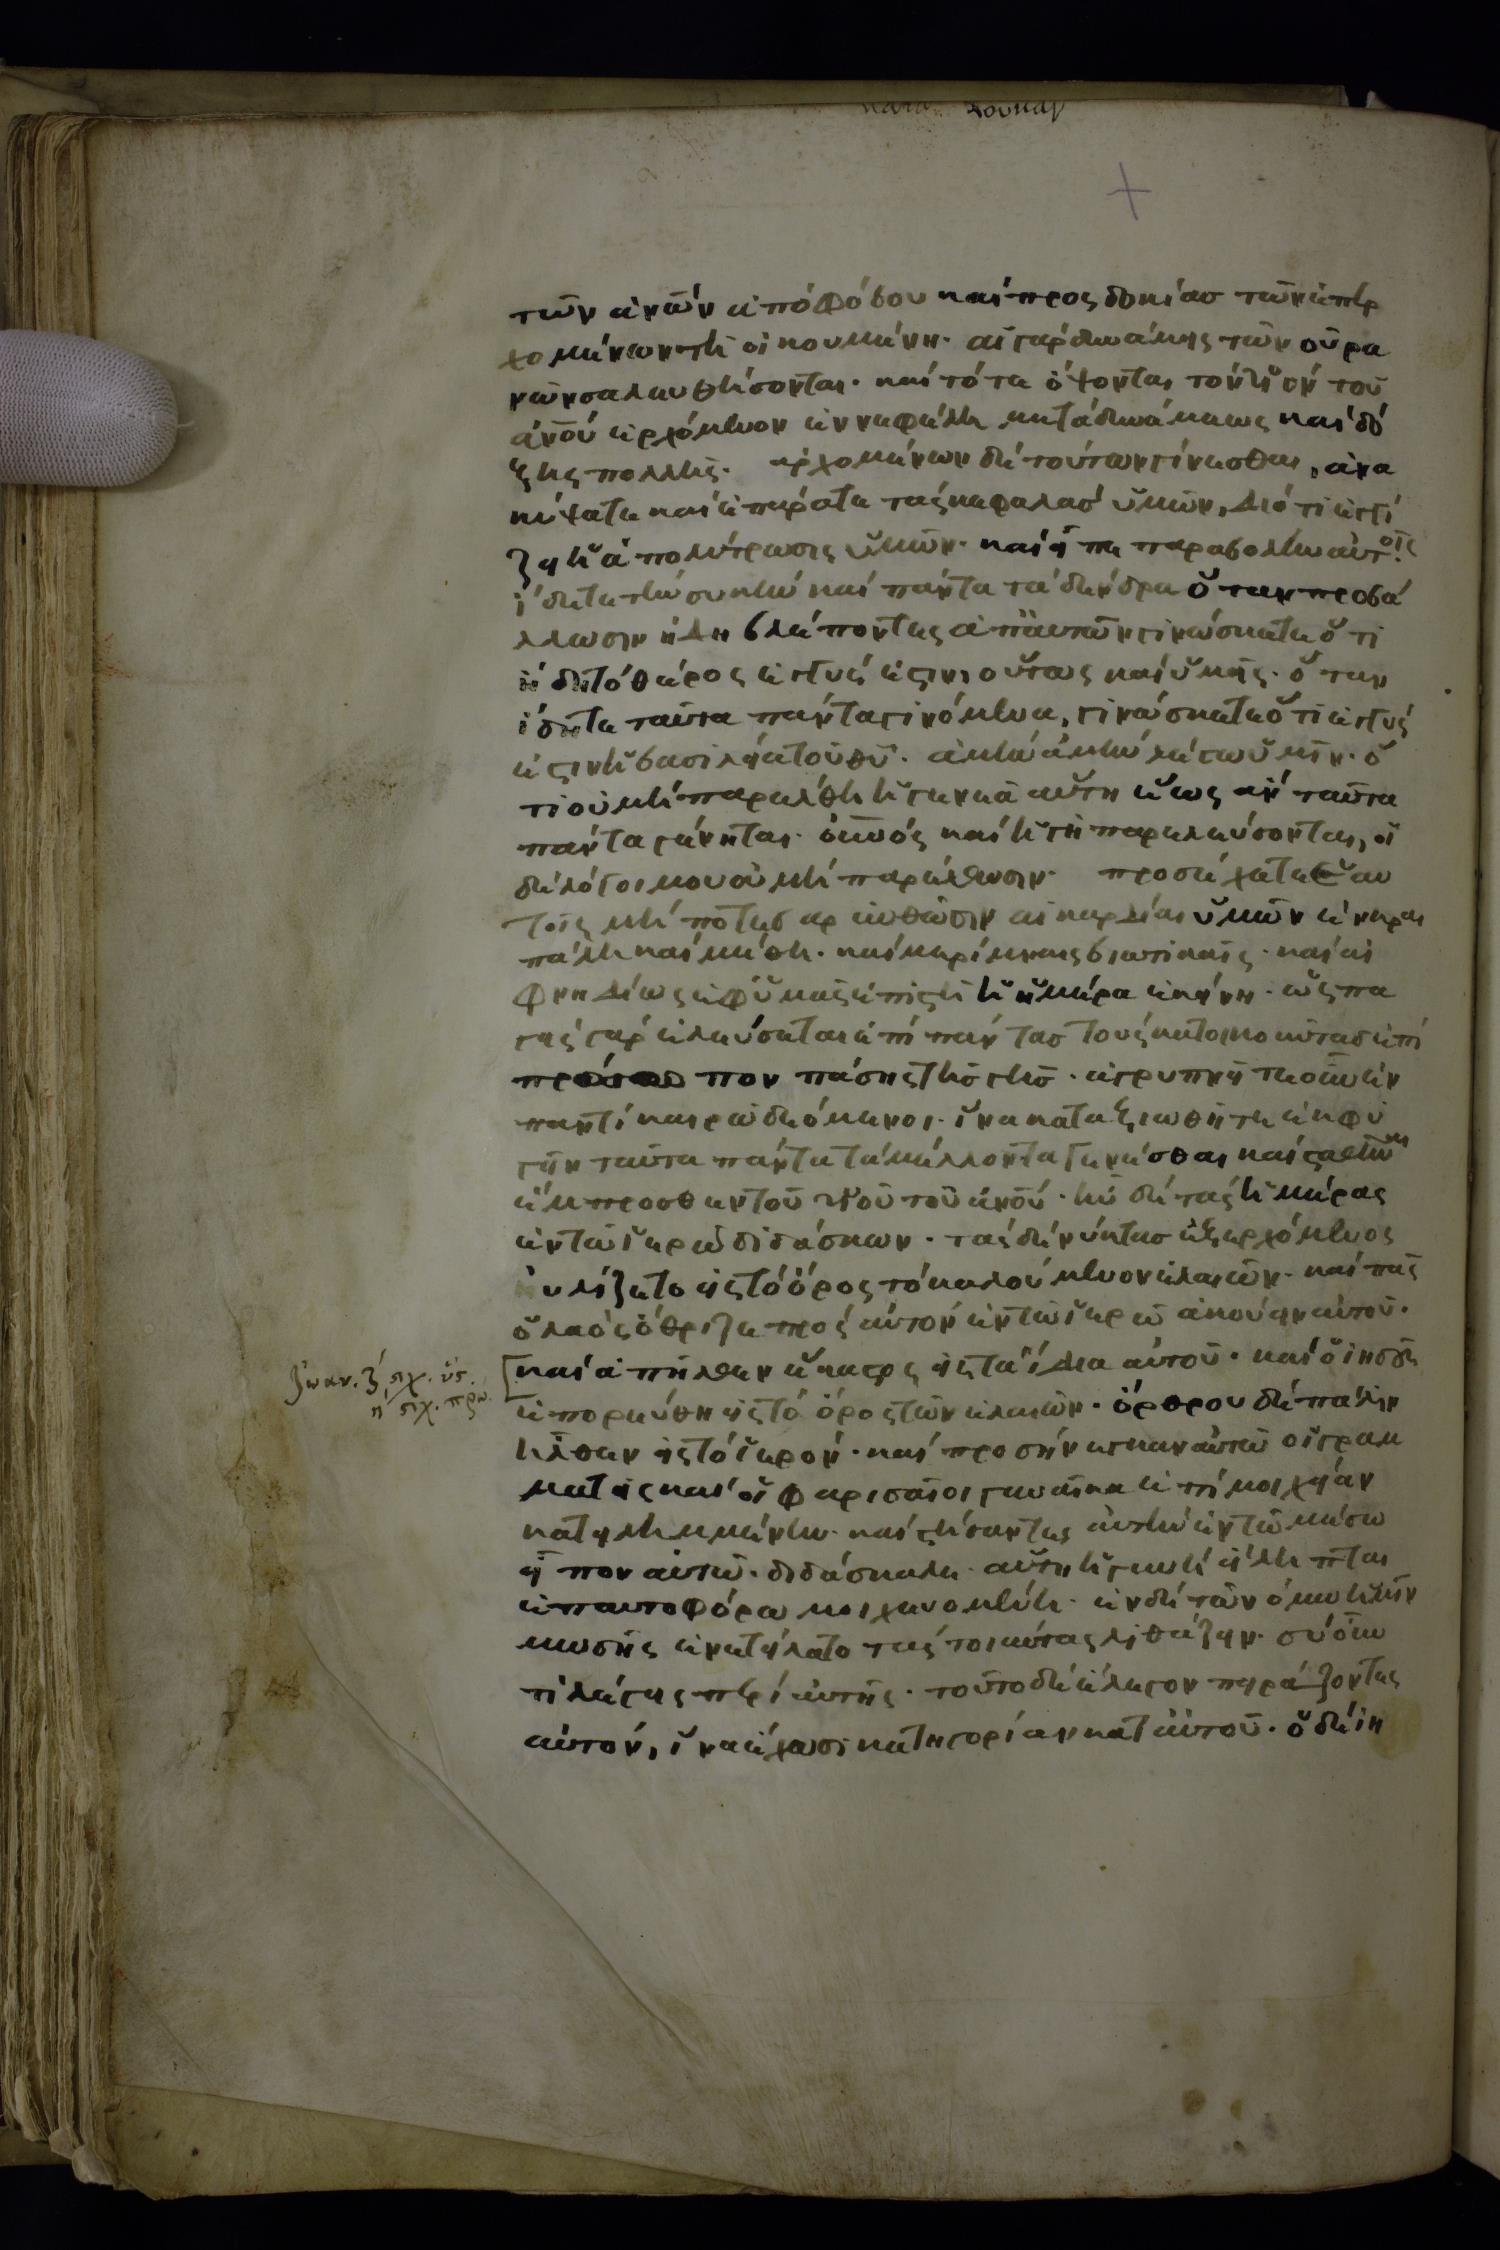 κατα λουκαν
τῶν ἀνῶν ἀπὸ φόβου καὶ προςδοκίας τῶν ἐπερ
χομένων τῆ οἰκουμένη· αἱ γὰρ δυνάμεις τῶν οὐρα
νῶν σαλευθήσονται· καὶ τότε ὄψονται τὸν ὑιὸν τοῦ
ἀνοῦ ἐρχόμενον ἐν νεφέλη μετὰ δυνάμεως καὶ δό
ξης πολλῆς. ἀρχομένων δὲ τούτων γίνεσθαι, ἀνα
κύψατε καὶ ἐπάρατε τὰς κεφαλὰς ὑμῶν, διότι ἐγγί
ζει ἡ ἀπολύτρωσις ὑμῶν· καὶ εἶπε παραβολὴν αὐτοῖς
ἴδετε τὴν συκῆν καὶ πάντα τὰ δένδρα ὅταν προβά
λλωσιν ἤδη βλέποντες ἀπ' αὐτῶν γινώσκετε ὅτι
ἤδη τὸ θέρος ἐγγύς ἐςιν, οὕτως καὶ ὑμεῖς· ὅταν
ἴδητε ταῦτα πάντα γινόμενα, γινώσκετε ὅτι ἐγγύς
ἐςιν ἡ βασιλεία τοῦ θῦ. ἀμὴν ἀμὴν λέγω ὑμῖν· ὅ
τι οὐ μὴ παρέλθη ἡ γενεὰ αὕτη ἕως ἂν ταῦτα
πάντα γένηται· ὁ οὐνὸς καὶ ἡ γῆ παρελεύσονται, οἱ
δὲ λόγοι μου οὐ μὴ παρέλθωσιν· προσέχετε ἑαυ
τοῖς μήποτε βαρευθῶσιν αἱ καρδίαι ὑμῶν ἐν κραι
πάλη καὶ μέθη· καὶ μερίμναις βιωτικαῖς· καὶ αἰ
φνηδίως ἐφ' ὑμᾶς ἐπιςῆ ἡ ἡμέρα ἐκείνη· ὡς πα
γὶς γὰρ ἐλεύσεται ἐπὶ πάντας τοὺς κατοικοῦντας ἐπὶ
πρόσωπον πάσης τῆς γῆς· ἀγρυπνεῖτε οὖν ἐν
παντὶ καιρῶ δεόμενοι· ἵνα καταξιωθῆτε ἐκφυ
γεῖν ταῦτα πάντα τὰ μέλλοντα γενέσθαι καὶ ςαθῆναι
ἔμπροσθεν τοῦ ὑιοῦ τοῦ ἀνοῦ· ἦν δὲ τὰς ἡμέρας
ἐν τῶ ἱερῶ διδάσκων· τὰς δὲ νύκτας ἐξερχόμενος
ηὐλίζετο εἰς τὸ ὄρος τὸ καλούμενον ἐλαιῶν· καὶ πᾶς
ὁ λαὸς ὄθριζε πρὸς αὐτὸν ἐν τῶ ἱερῶ ἀκούειν αὐτοῦ.
[καὶ ἀπῆλθεν ἕκαςος εἰς τὰ ἴδια αὐτοῦ· καὶ ὁ ἰησοῦς
ἐπορεύθη εἰς τὸ ὄρος τῶν ἐλαιῶν· ὄρθρου δὲ πάλιν
ἦλθεν εἰς τὸ ἱερόν· καὶ προσήνεγκαν αὐτῶ οἱ γραμ
ματεῖς καὶ οἱ φαρισαῖοι γυναῖκα ἐπὶ μοιχείαν
κατειλημμένην· καὶ ςήσαντες αὐτὴν ἐν τῶ μέσω
εἶπον αὐτῶ· διδάσκαλε· αὕτη ἡ γυνὴ εἴληπται
ἐπαυτοφόρω μοιχευομένη· ἐν δὲ τῶ νόμω ἡμῖν
μωσῆς ἐνετείλατο τὰς τοιαύτας λιθάζειν· σὺ οὖν
τί λέγεις περὶ αὐτῆς· τοῦτο δὲ ἔλεγον πειράζοντες
αὐτόν, ἵνα ἔχωσι κατηγορίαν κατ' αὐτοῦ· ὁ δὲ ἰη
Ἰωαν. ζ, ϛιχ. ὑϛ.
η ϛιχ. πρω.